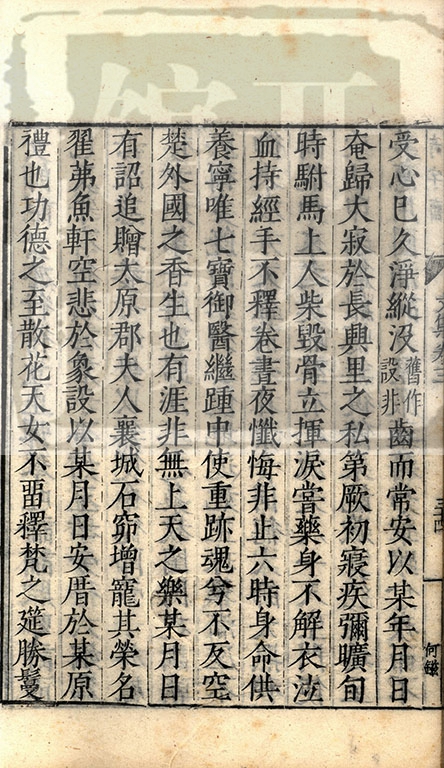 受心已久淨縱沒舊作設非齒而常安以某年月日
奄歸大寂於長興里之私第厥初寢疾彌曠旬
時駙馬上人柴毀骨立揮淚嘗藥身不解衣泣
血持經手不釋卷晝夜懺悔非止六時身命供
養寧唯七寶御醫繼踵中使重跡魂兮不反空
焚外國之香生也有涯非無上天之藥某月日
有詔追贈太原郡夫人襄城石窌增寵其榮名
翟茀魚軒空悲於象設以某月日安厝於某原
禮也功德之至散花天女不畱釋梵之筵勝鬘
何鑰